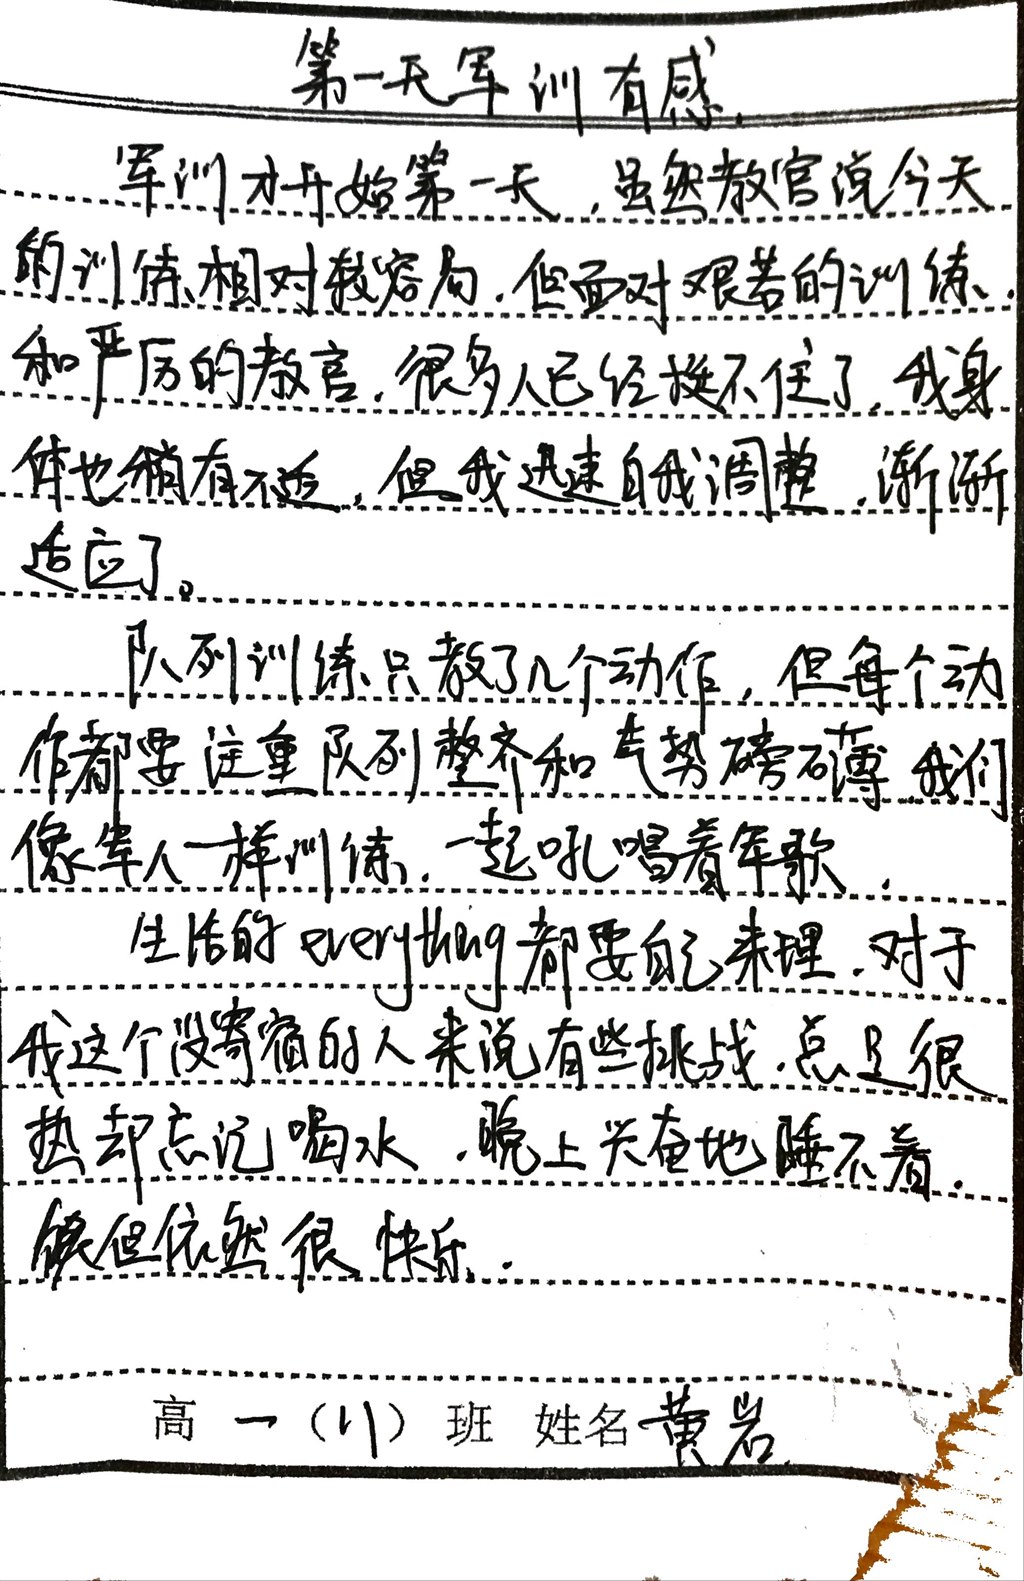 第一天军训有感.
军训才开始第一天,虽然教官说今天
的训练相对较容易,但面对艰苦的训练,
和严厉的教官,很多人已经挺不住了,我身
体也稍有不适,但我迅速自我调整,渐渐
适应了。
队列训练只教了几个动作,但每个动
作都要注重队列整齐和气势磅礴,我们
像军人一样训练,一起吼唱着军歌.
生活的everything都要自己来理,对于
我这个没寄宿的人来说有些挑战,点足很
热却忘记喝水,晚上兴奋地睡不着.
但依然很快乐.
高一(11)班 姓名 黄岩